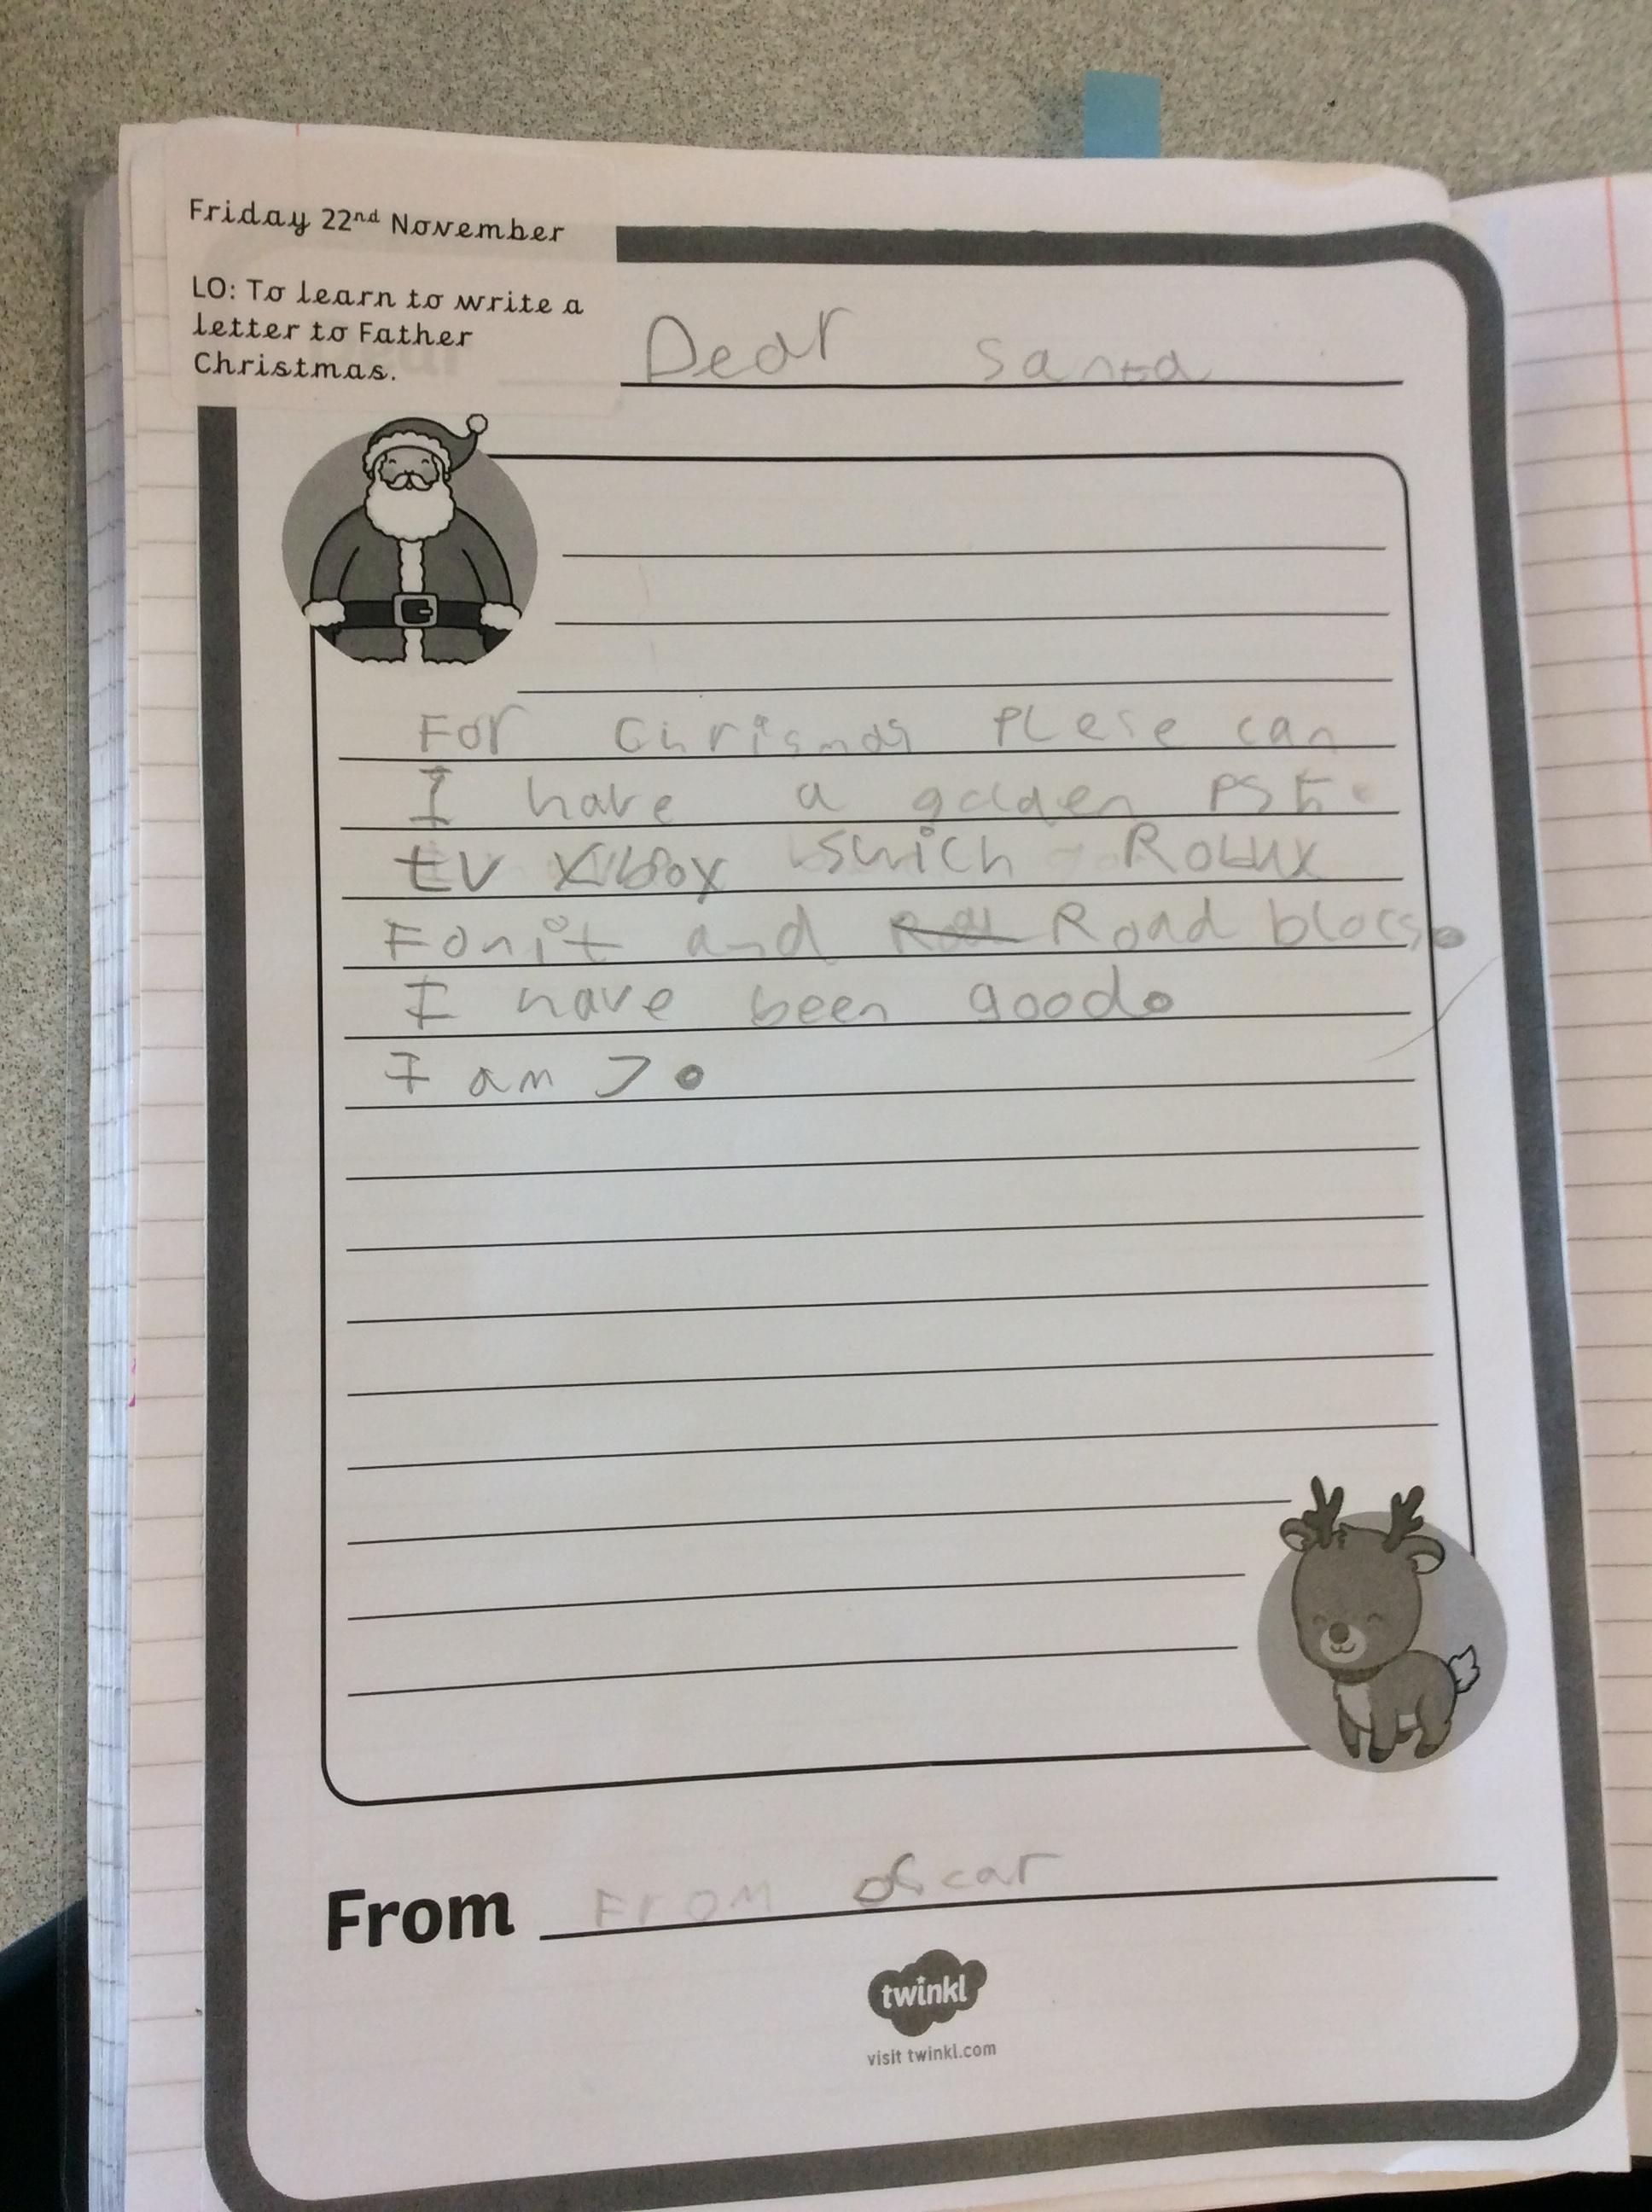 Friday 22nd November
LO: To learn to write a
letter to Father
Christmas.
Dear Santa
For Chrismas Plese can
I have a golden PS5.
tv Xbox swich Robux
Fonit and Road blocs.
I have been good.
I am 7.
From From oscar
twinkl
visit twinkl.com